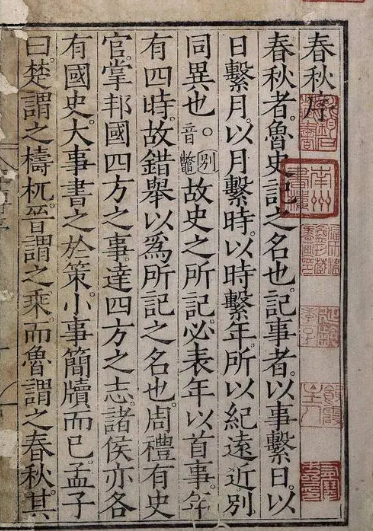 春秋序
春秋者魯史記之名也記事者以事繫日以
日繫月以月繫時以時繫年所以紀遠近別
同異也。別音鼈故史之所記必表年以首事年
有四時故錯舉以爲所記之名也周禮有史
官掌邦國四方之事達四方之志諸侯亦各
有國史大事書之於策小事簡牘而已孟子
曰楚謂之檮杌晉謂之乘而魯謂之春秋其